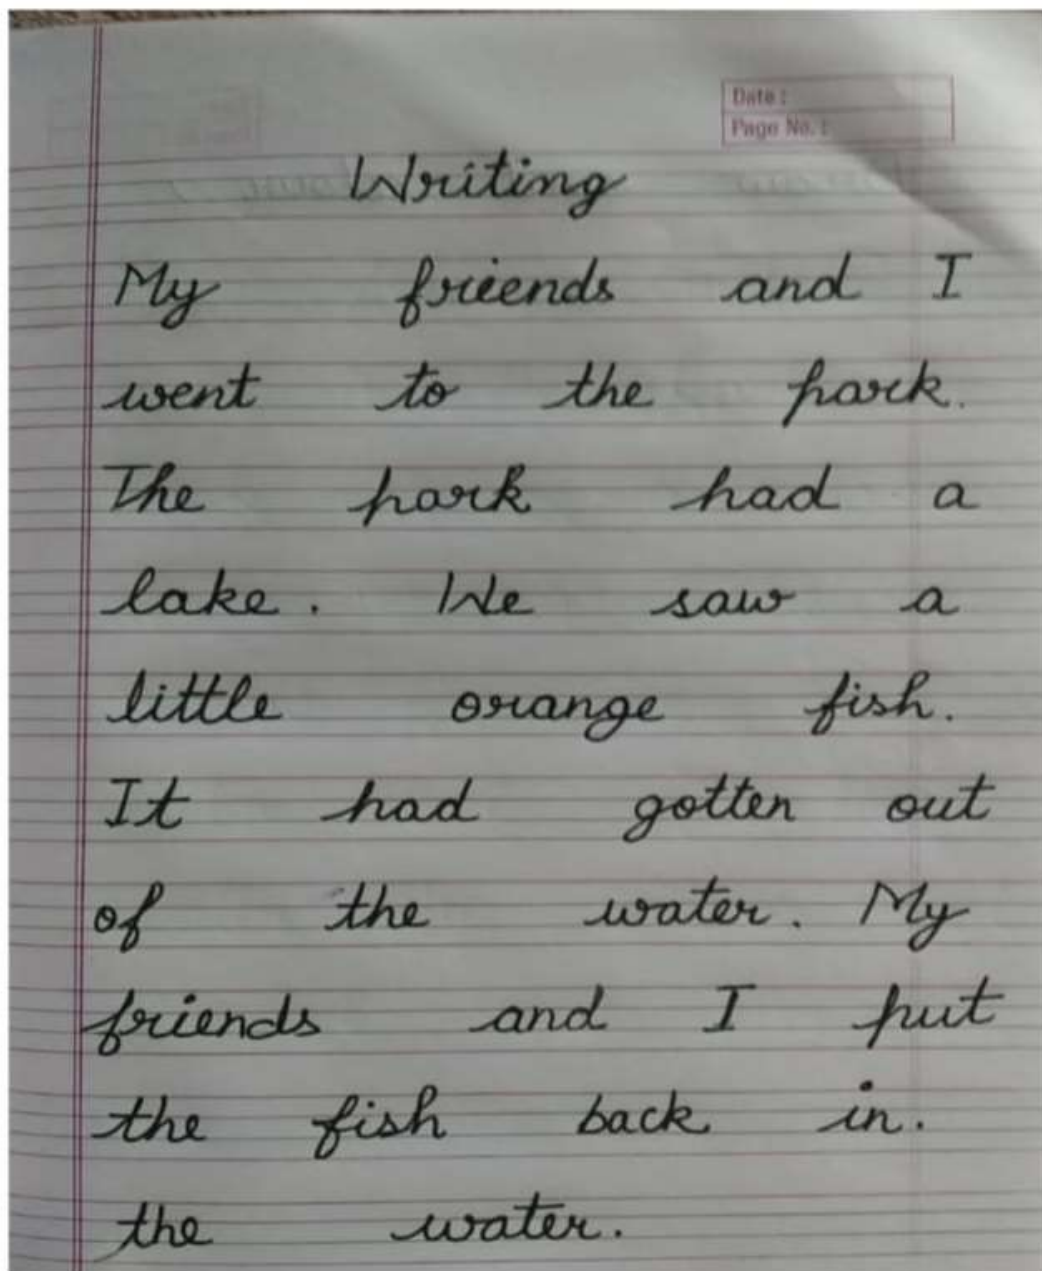 Date :
Page No. :
Writing
My friends and I
went to the park.
The park had a
lake. We saw a
little orange fish.
It had gotten out
of the water. My
friends and I put
the fish back in.
the water.